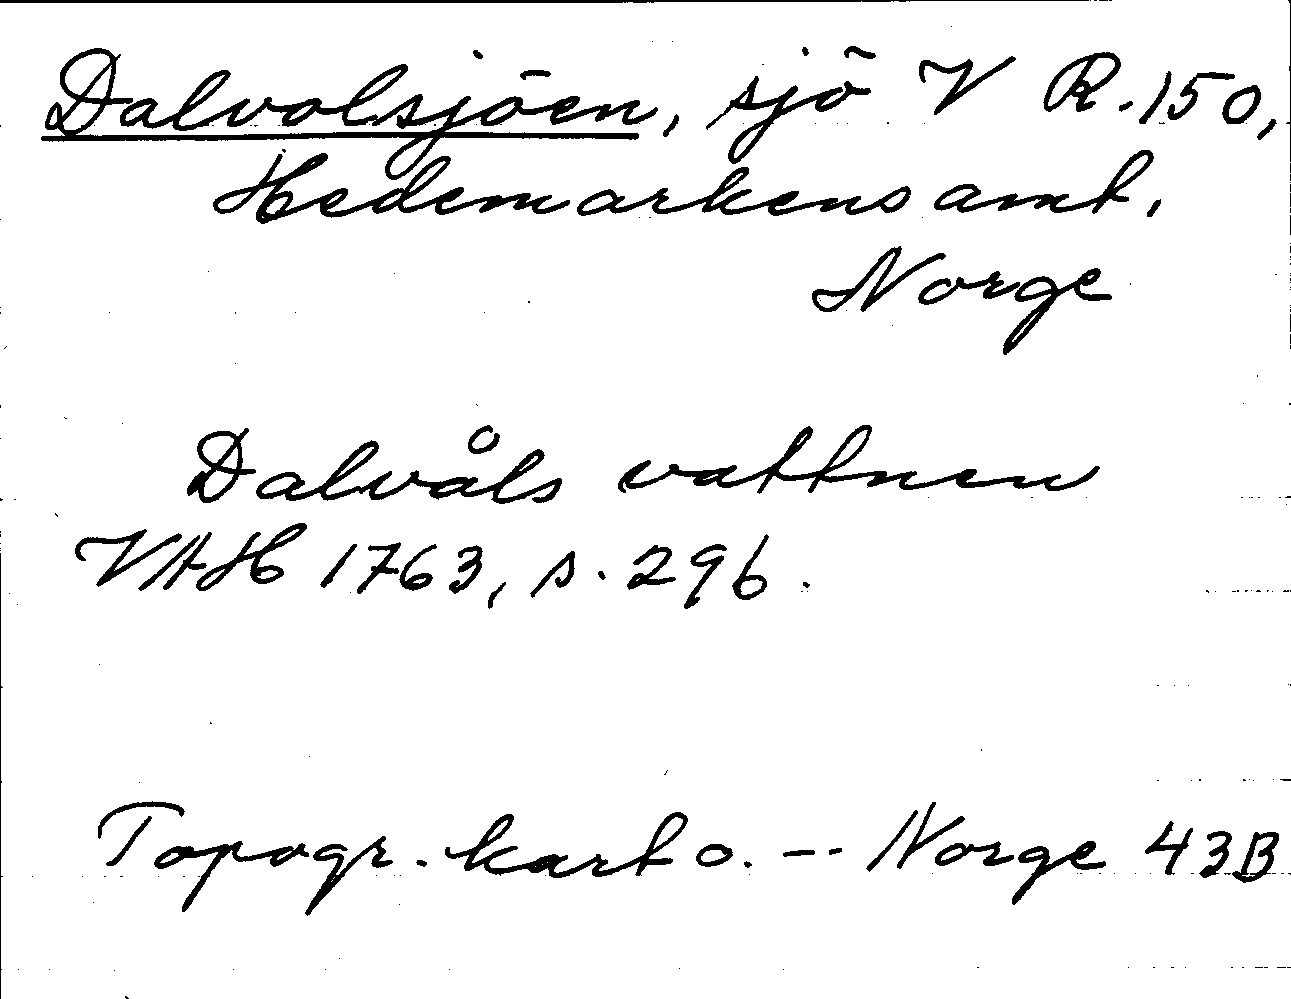 Dalvolsjöen, sjö V R. 150,
Hedemarkens amt,
Norge
Dalvåls vattnen
VAH 1763, s. 296.
Topogr. kart o. -- Norge 43B